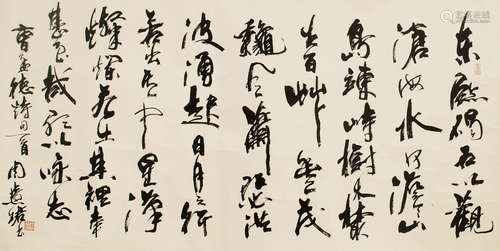 東臨碣石以觀
滄海水何澹澹山
島竦峙樹木叢
生百艸豐茂
龝風蕭瑟洪
波湧起日月之行
若出其中星漢
燦爛若出其裡幸
甚至哉歌以詠志
曹孟德詩一首 周慧珺書